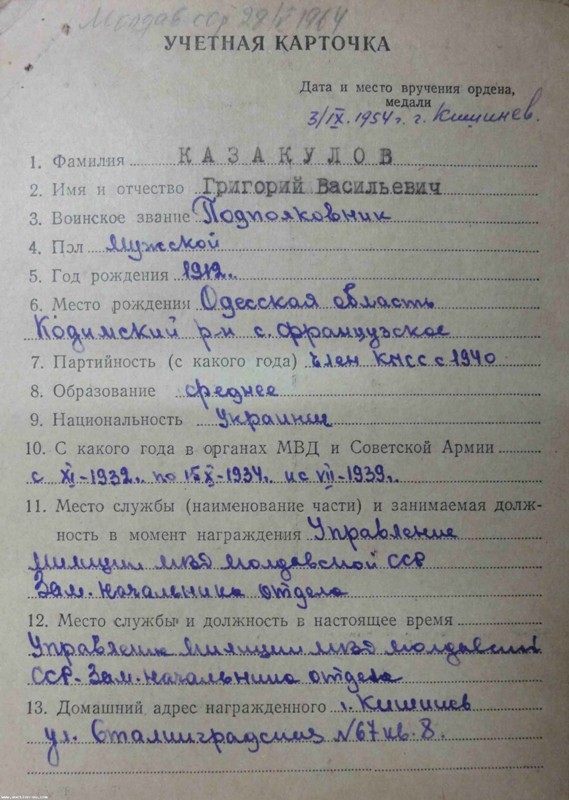 Молдав сср 28/V 1964
УЧЕТНАЯ КАРТОЧКА
Дата и место вручения ордена,
медали
3/IX.1954 г. г. Кишинев.
1. Фамилия КАЗАКУЛОВ
2. Имя и отчество Григорий Васильевич
3. Воинское звание Подполковник
4. Пол Мужской
5. Год рождения 1912г.
6. Место рождения Одесская область
Кодимский р-н с. Французское
7. Партийность (с какого года) Член КПСС с 1940
8. Образование среднее
9. Национальность Украинец
10. С какого года в органах МВД и Советской Армии
с XI-1932г. по 15 X-1934г. и с VII-1939г.
11. Место службы (наименование части) и занимаемая долж-
ность в момент награждения Управление
милиции МВД Молдавской ССР
Зам. начальника отдела
12. Место службы и должность в настоящее время
Управление милиции МВД Молдавской
ССР. Зам. начальника отдела
13. Домашний адрес награжденного г. Кишинев
ул. Сталинградская №67 кв. 8.